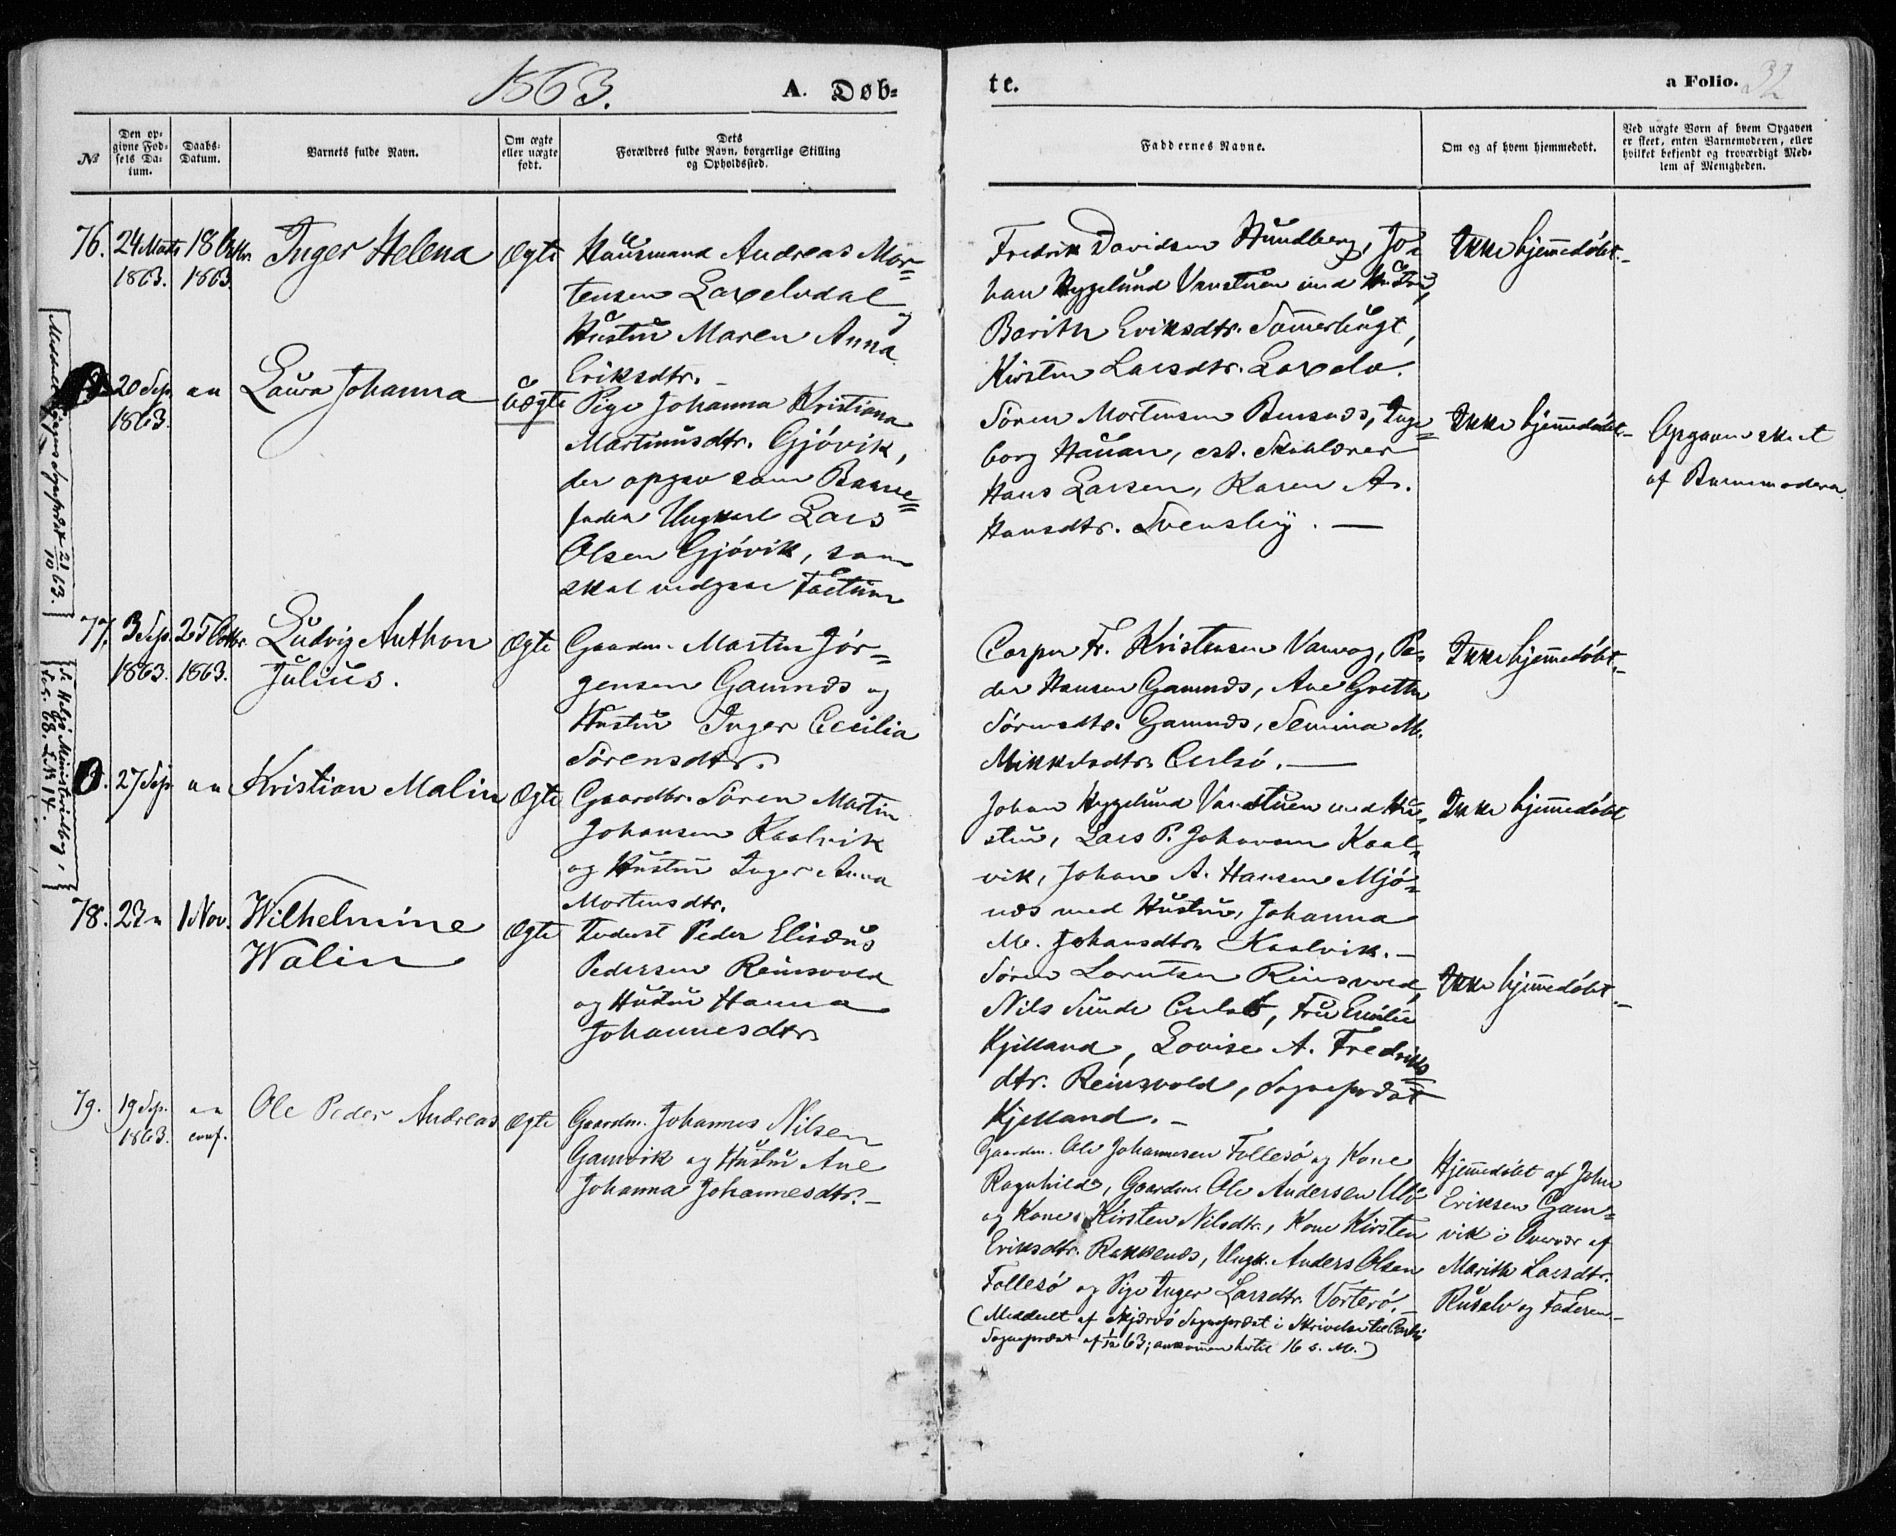 1863.
A. Døb=
te.
a Folio. 32
№
Den op-
givne Fød-
sels Da-
tum.
Daabs-
Datum.
Barnets fulde Navn.
Om ægte
eller uægte
født.
Dets
Forældres fulde Navn, borgerlige Stilling
og Opholdssted.
Faddernes Navne.
Om og af hvem hjemmedøbt.
Ved uægte Børn af hvem Opgaven
er skeet, enten Barnemoderen, eller
hvilket bekjendt og troværdigt Med-
lem af Menigheden.
76.
24 Marts
1863.
18 Octbr.
1863.
Inger Helena
Ægte
Huusmand Andreas Mor=
tensen Laxelvdal og
Hustru Maren Anna
Eriksdtr. _
Fredrik Davidsen Hundberg, Jo=
han Hygelund Vanstuen med Hustru,
Berith Eriksdtr. Sommerbugt,
Kirsten Larsdtr. Laxelv.
Ikke hjemmedøbt._
20 Sep.
1863.
Laura Johanna
Uægte
Pige Johanna Kristiana
Martinusdtr. Gjövik,
der opgav som Barne=
fader Ungkarl Lars
Olsen Gjövik, som
skal vedgaae Factum
Sören Mortensen Bensnæs, Inge=
borg Hauan, est. Skolelærer
Hans Larsen, Karen A.
Hansdtr. Svensby. —
Ikke hjemmedöbt._
Opgaven skeet
af Barnemoderen
21/10 63.
77.
3 Sep.
1863.
25 Octbr.
1863.
Ludvig Anthon
Julius.
Ægte
Gaardm. Martin Jör=
gensen Gamnæs og
Hustru Inger Cecilia
Sörensdtr.
Casper Fr. Kristensen Vanvag, Pe=
der Hansen Gamnæs, Ane Grethe
Sörensdtr. Gamnæs, Semina M.
Mikkelsdtr. Carlsö. —
Ikke hjemmedöbt._
27 Sep.
Kristian Malin
Ægte
Gaardbr. Sören Martin
Johansen Kaalvik
og Hustru Inger Anna
Mortensdtr.
Johan Hygelund Vanstuen med Hu=
stru, Lars P. Johansen Kaal=
vik, Johan A. Hansen Mjö=
næs med Hustru, Johanna
M. Johansdtr. Kaalvik. _
Ikke hjemmedöbt
78.
1 Nov.
Wilhelmine
Walin
Ægte
Inderst Peder Elisæus
Pedersen Reinsvold
og Hustru Hanna
Johannesdtr.
Sören Lorentsen Reinsvold,
Nils Sunde Carlsö, Fru Emilie
Kjelland, Lovise A. Fredriks=
dtr. Reinsvold, Sognepræst
Kjelland. _
Ikke hjemmedöbt._
79.
19 Sep.
1863.
conf.
Ole Peder Andreas
Ægte
Gaardm. Johannes Nilsen
Gamvik og Hustru Ane
Johanna Johannesdtr. _
Gaardm. Ole Johannesen Follesö og Kone
Ragnhild, Gaardm. Ole Andersen Ulö
og Kone Kirsten Nilsdtr., Kone Kirsten
Eriksdtr. Rakkenæs, Ungk. Anders Olsen
Follesö og Pige Inger Larsdtr. Vorterö. _
(Meddeelt af Skjervö Sognepræst i Skrivelse til Carlsö
Sognepræst af 1/12 63; ankommen hertil 16 s. M.)
Hjemmedöbt af John
Eriksen Gam=
vik i Overvær af
Marith Larsdtr.
Ruselv og Faderen._